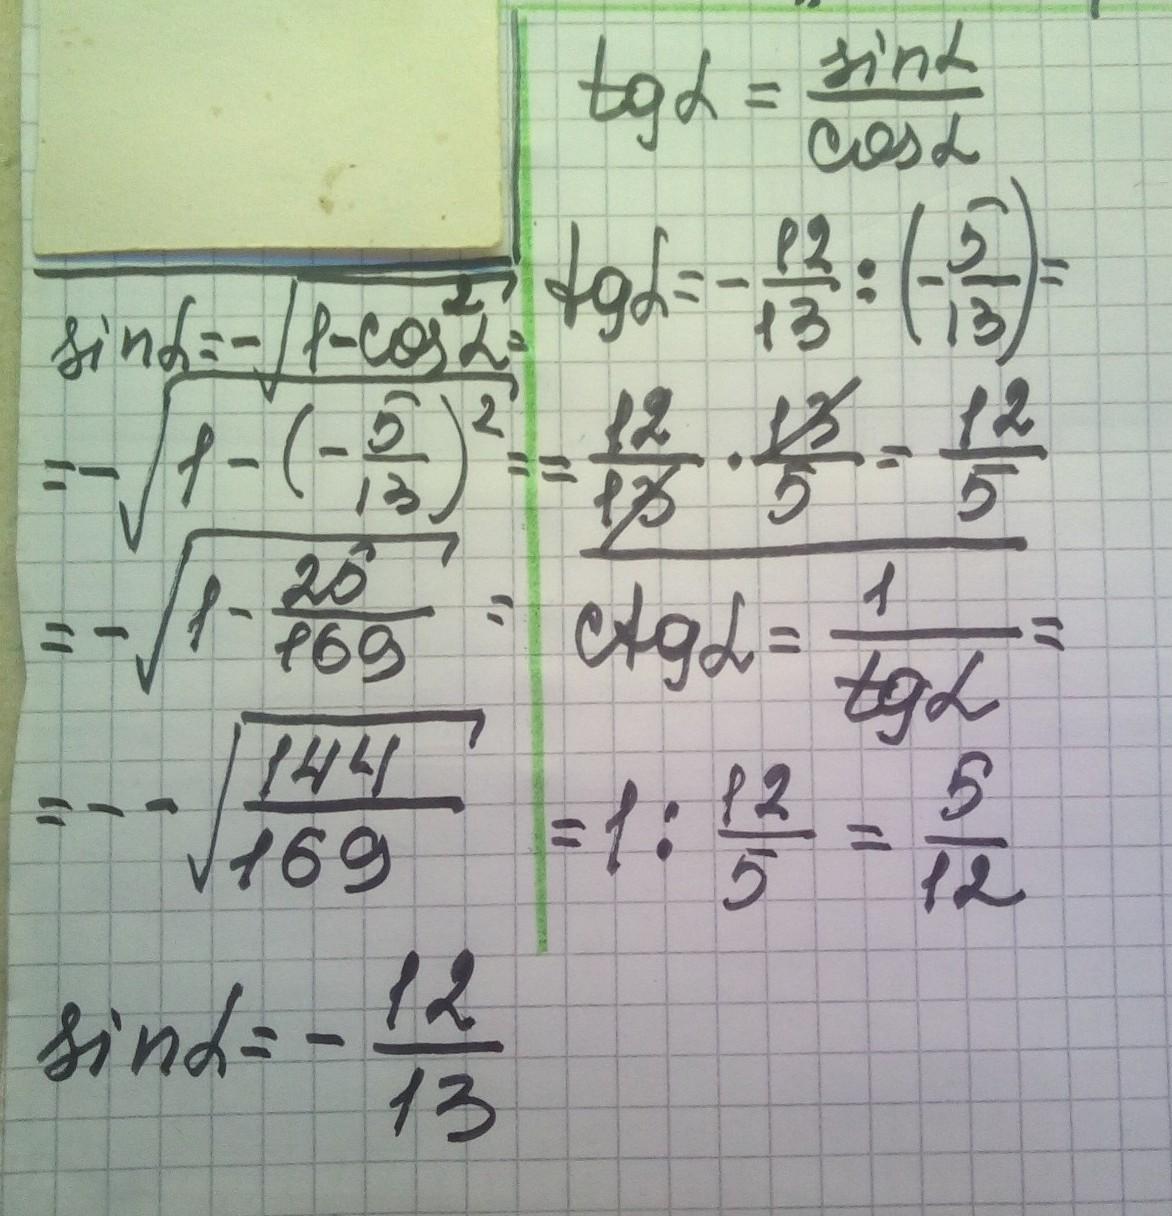 sinα = -√(1-cos²α) =
= -√(1 - (-5/13)²) =
= -√(1 - 25/169) =
= - -√(144/169)
sinα = - 12/13
tgα = sinα/cosα
tgα = - 12/13 : (-5/13) =
= 12/13 · 13/5 = 12/5
ctgα = 1/tgα =
= 1 : 12/5 = 5/12